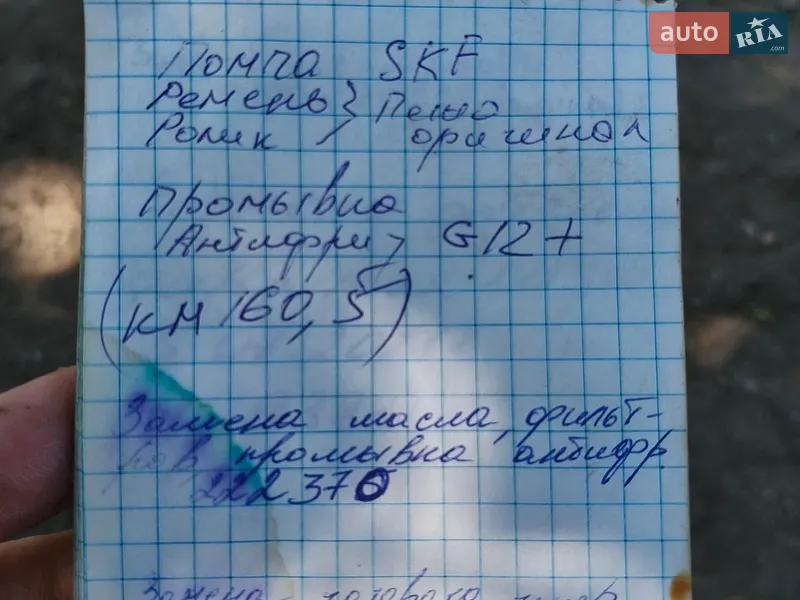 auto RIA .com
Помпа SKF
Ремень } Пежо
Ролик оригинал
Промывка
Антифриз G12+
(км 160,5)
Замена масла, фильт-
ров, промывка антифр.
222376
Замена